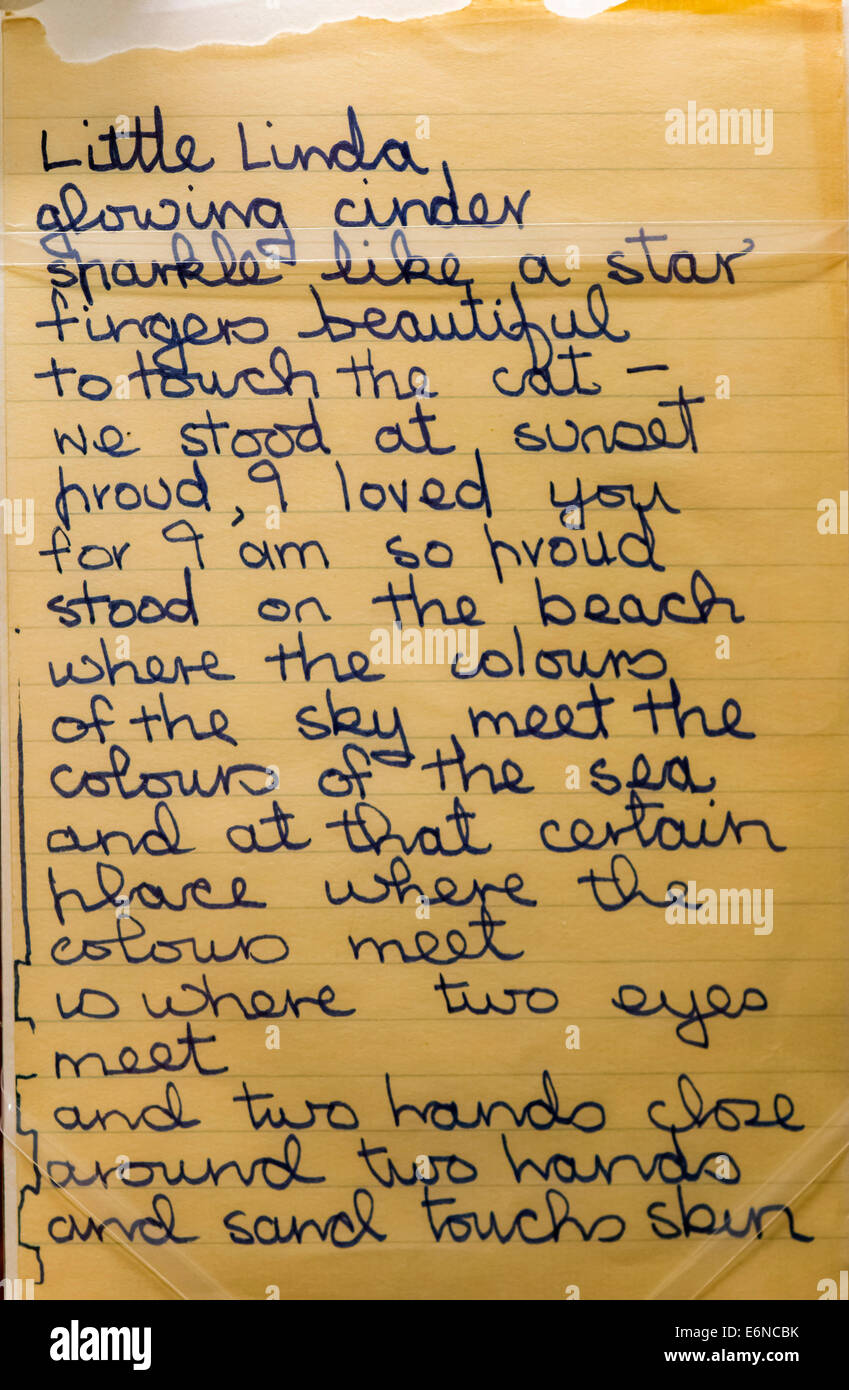 Little Linda,
glowing cinder
sparkle like a star
fingers beautiful
to touch the cat –
we stood at sunset
proud, I loved you
for I am so proud
stood on the beach
where the colours
of the sky meet the
colours of the sea
and at that certain
place where the
colours meet
is where two eyes
meet
and two hands close
around two hands
and sand touchs skin
alamy
Image ID: E6NCBK
www.alamy.com